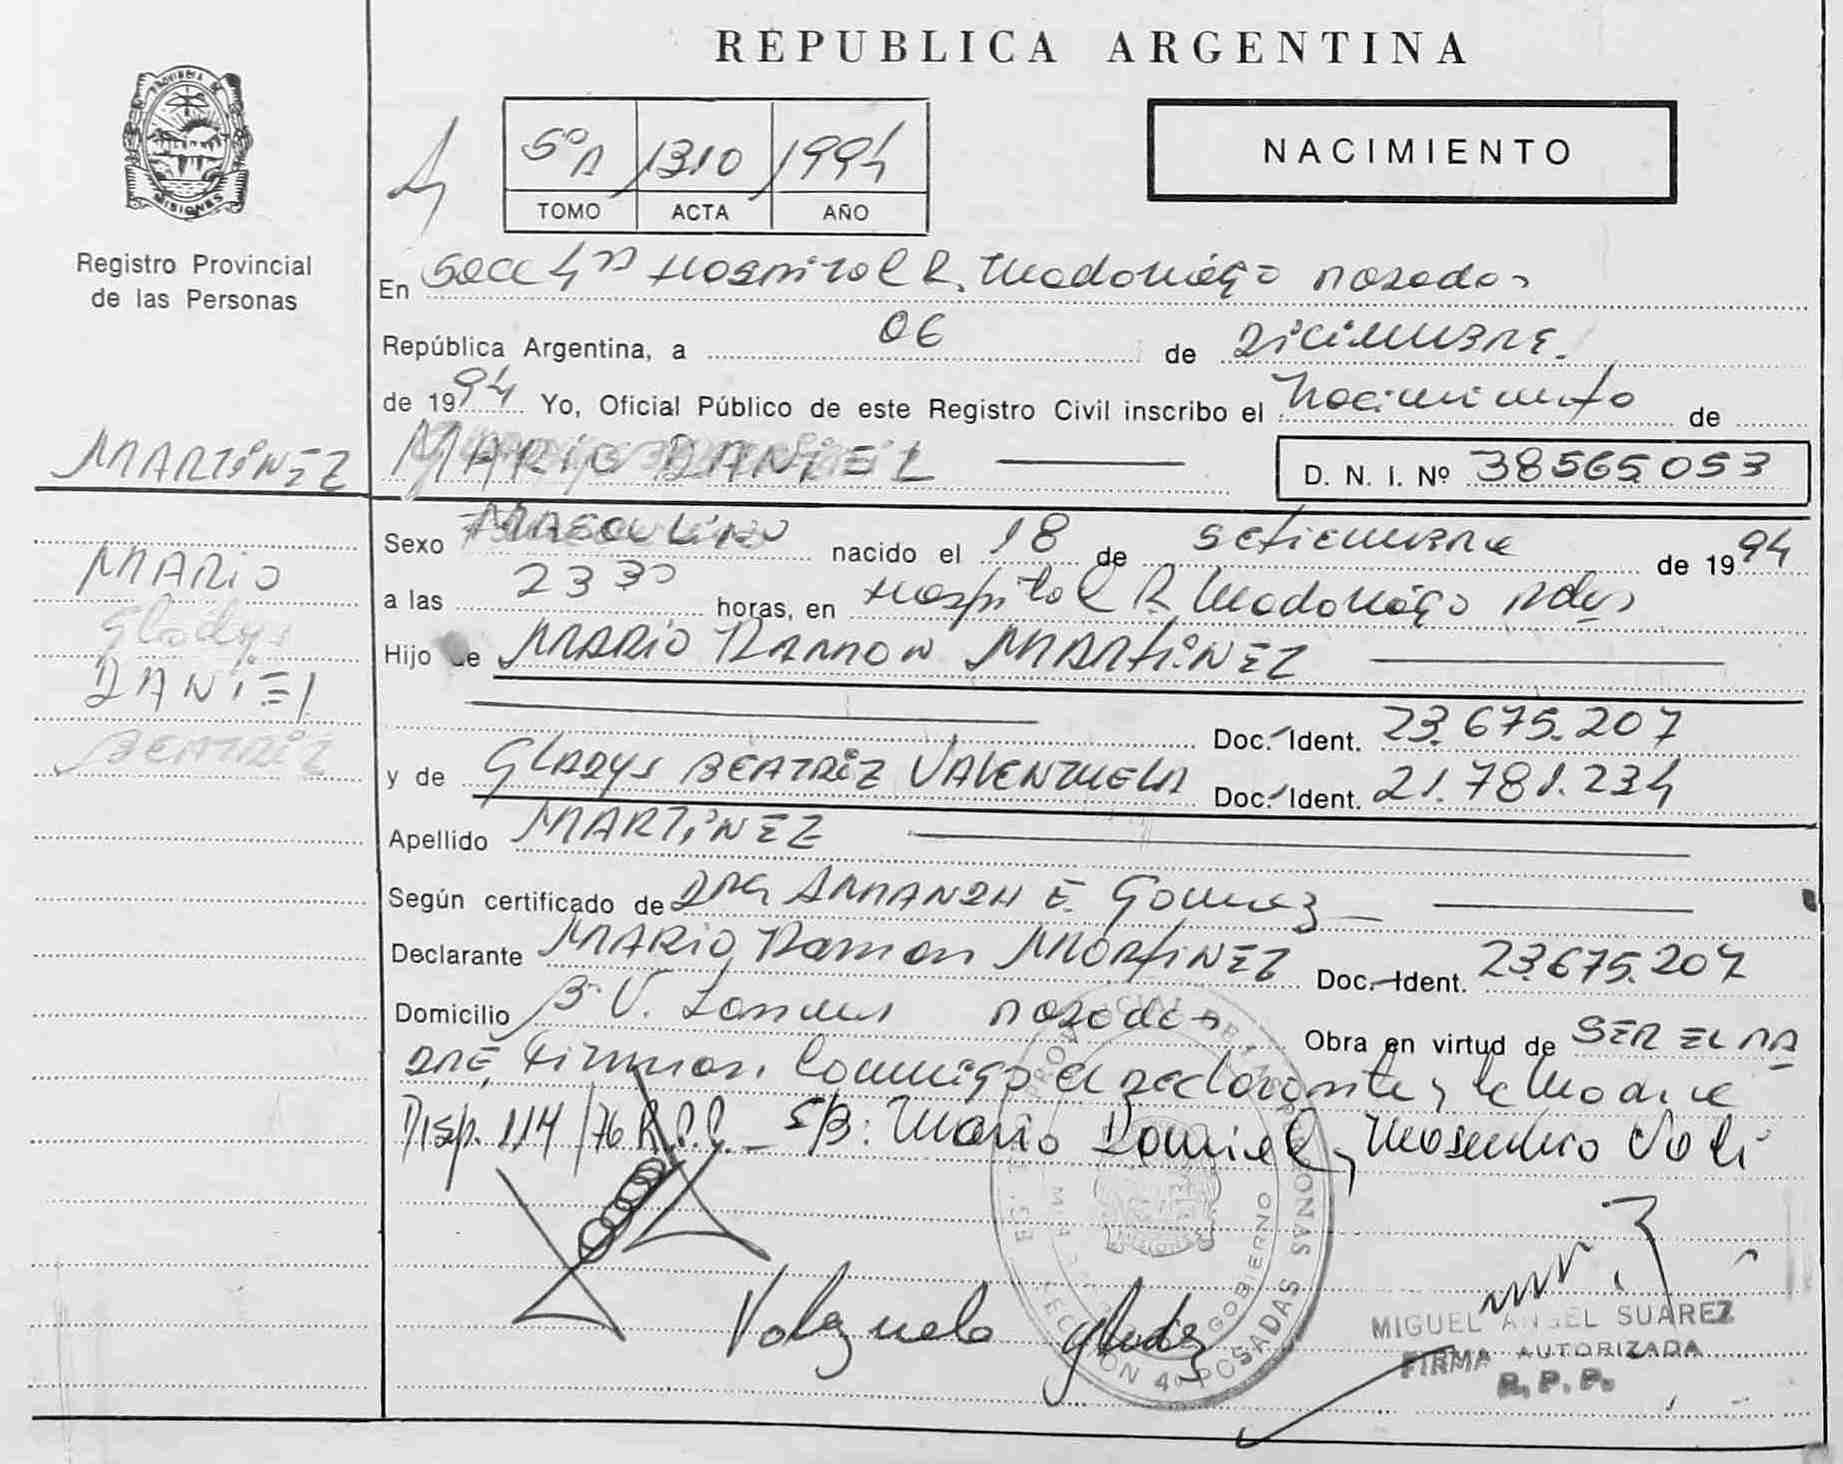 REPUBLICA ARGENTINA
PROVINCIA
MISIONES
Registro Provincial
de las Personas
1310 1994
TOMO ACTA AÑO
NACIMIENTO
En Secc 4ta Hospital R. Madariaga Posadas
República Argentina, a 06 de Diciembre.
de 1994 Yo, Oficial Público de este Registro Civil inscribo el Nacimiento de
MARTINEZ
MARIO DANIEL
D. N. I. Nº 38565053
Sexo MASCULINO nacido el 18 de setiembre de 1994
MARIO
a las 23 30 horas, en Hospital R. Madariaga Pdas
Gladys
Hijo de MARIO RAMON MARTINEZ
DANIEL
Doc. Ident. 23.675.207
BEATRIZ
y de GLADYS BEATRIZ VALENZUELA Doc. Ident. 21.781.234
Apellido MARTINEZ
Según certificado de Dra ARMANDA E. Gomez
Declarante MARIO Ramon MARTINEZ Doc. Ident. 23.675.207
Domicilio Posadas Obra en virtud de SER EL PA
DRE, Firman conmigo el declarante y la Madre
Disp. 114/76 R.P.P. S/B: Mario Daniel, Masculino Vale
Valezuela Glads
GOBIERNO
SECCION 4a POSADAS
MIGUEL ANGEL SUAREZ
FIRMA AUTORIZADA
R. P. P.